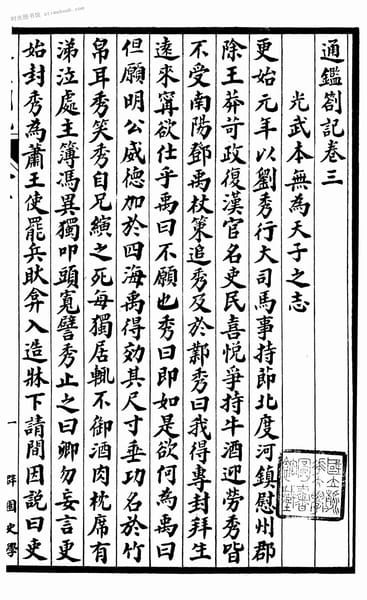 时光图书馆
通鑑劄記卷三
光武本無為天子之志
更始元年以劉秀行大司馬事持節北度河鎮慰州郡
除王莽苛政復漢官名吏民喜悅爭持牛酒迎勞秀皆
不受南陽鄧禹杖策追秀及於鄴秀曰我得專封拜生
遠來甯欲仕乎禹曰不願也秀曰即如是欲何為禹曰
但願明公威德加於四海禹得効其尺寸垂功名於竹
帛耳秀笑秀自兄縯之死每獨居輒不御酒肉枕席有
涕泣處主簿馮異獨叩頭寬譬秀止之曰卿勿妄言更
始封秀為蕭王使罷兵耿弇入造牀下請間因說曰吏
一
辟園史學